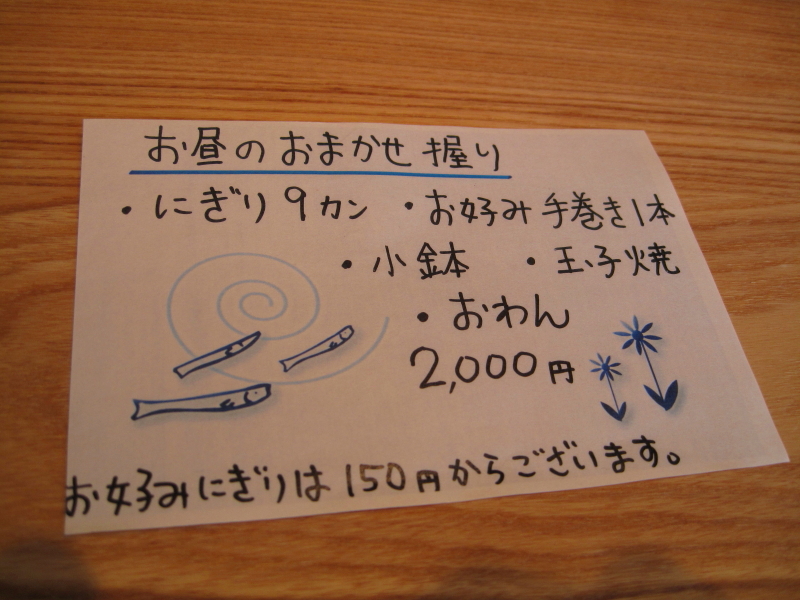 お昼のおまかせ握り
・にぎり9カン ・お好み手巻き1本
・小鉢 ・玉子焼
・おわん
2,000円
お好みにぎりは150円からございます。